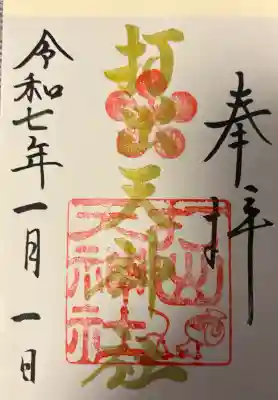 奉拝
打出天神社
打出
天神社
令和七年一月一日